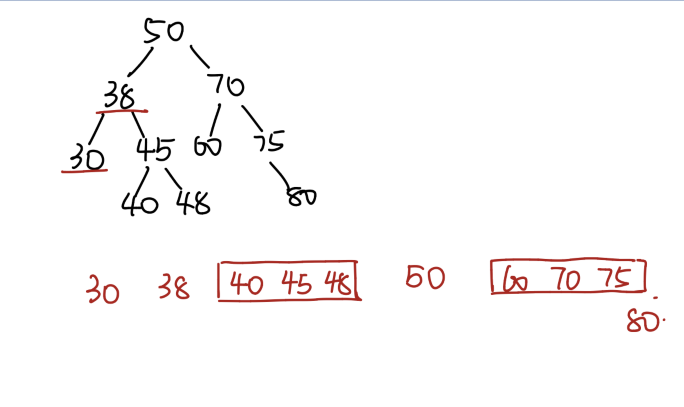 50
38 70
30 45 60 75
40 48 80
30 38 40 45 48 50 60 70 75
80.